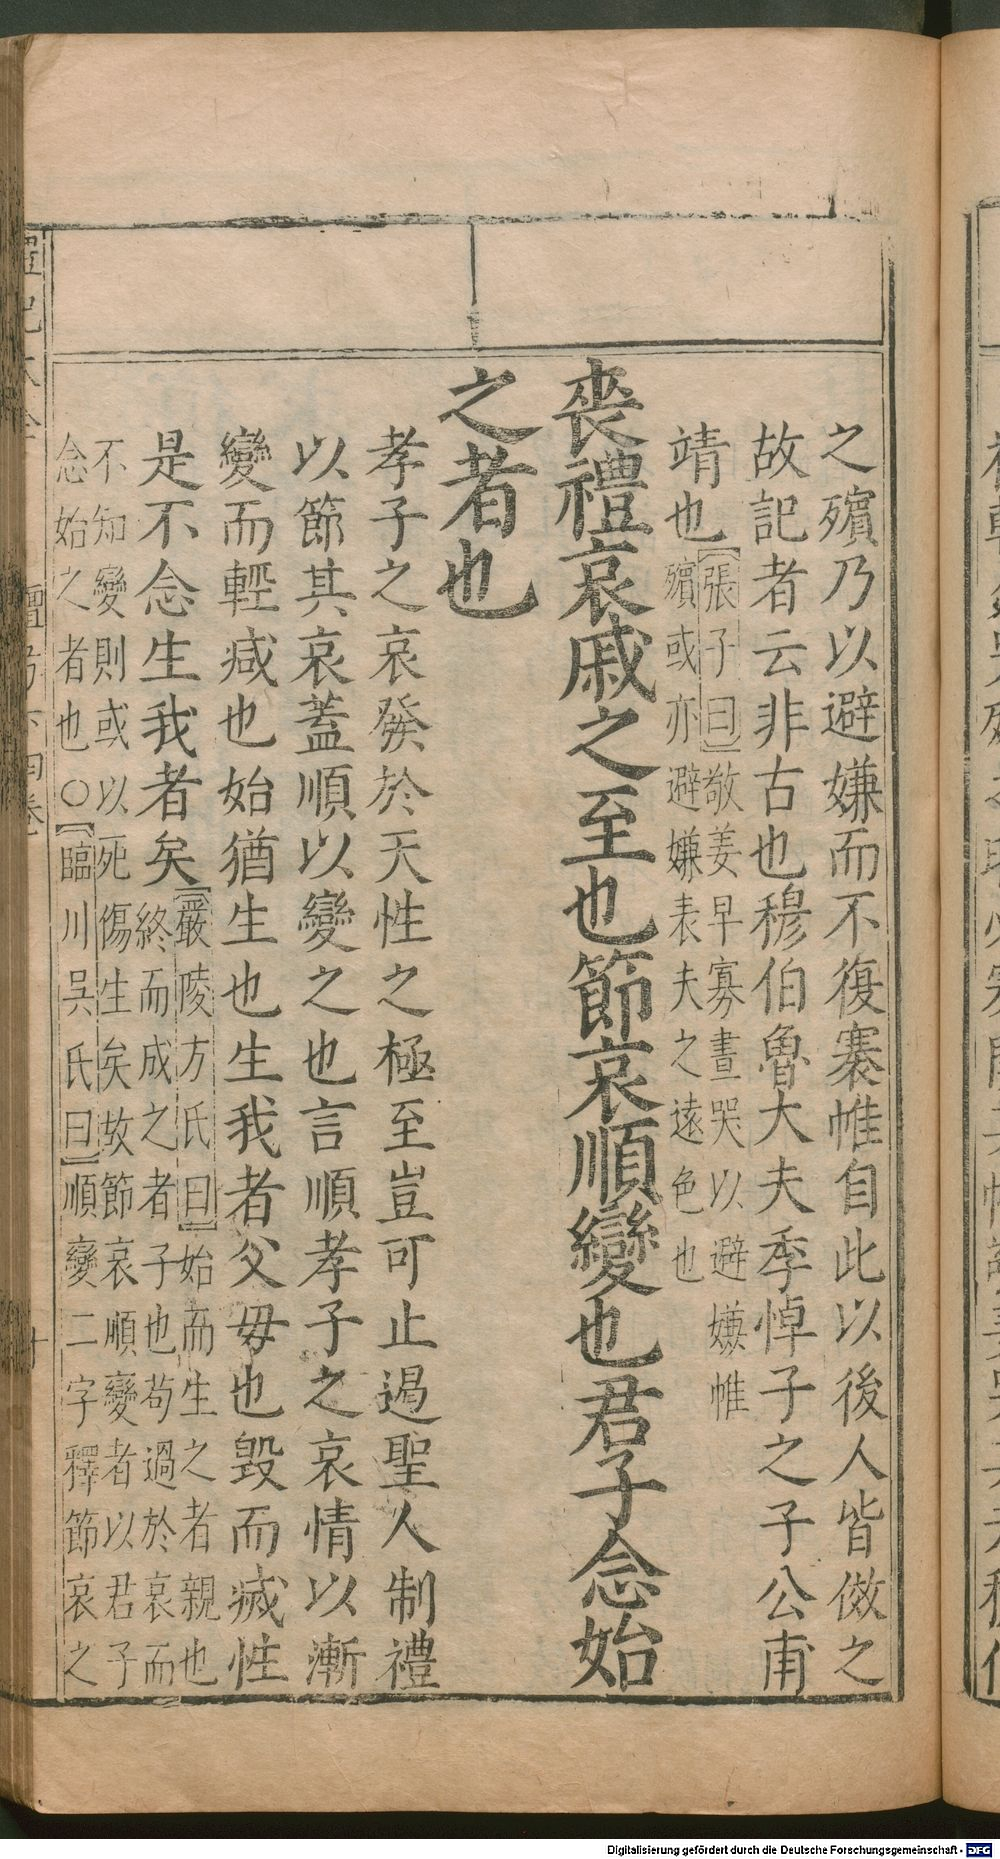 之殯乃以避嫌而不復褰帷自此以後人皆倣之
故記者云非古也穆伯魯大夫季悼子之子公甫
靖也【張子曰】敬姜早寡晝哭以避嫌帷
殯或亦避嫌表夫之遠色也
喪禮哀戚之至也節哀順變也君子念始
之者也
孝子之哀發於天性之極至豈可止遏聖人制禮
以節其哀蓋順以變之也言順孝子之哀情以漸
變而輕减也始猶生也生我者父毋也毁而滅性
是不念生我者矣【嚴陵方氏曰】始而生之者親也
終而成之者子也苟過於哀而
不知變則或以死傷生矣故節哀順變者以君子
念始之者也○【臨川吳氏曰】順變二字釋節哀之
Digitalisierung gefördert durch die Deutsche Forschungsgemeinschaft - DFG